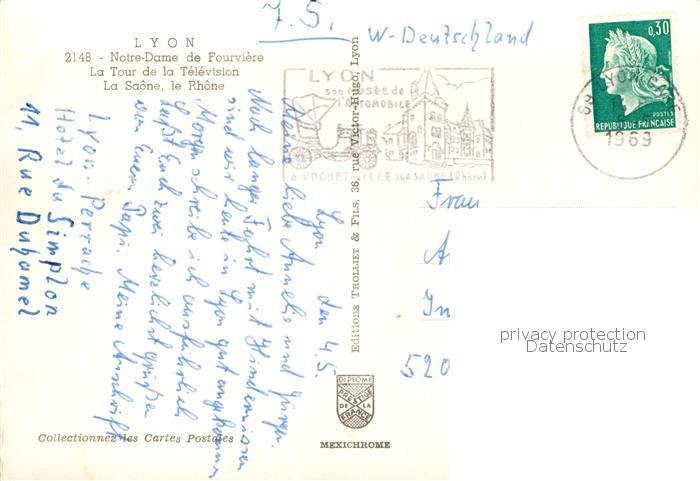 LYON
2148 - Notre-Dame de Fourvière
La Tour de la Télévision
La Saône, le Rhône
7.5.
W-Deutschland
0,30
POSTES
REPUBLIQUE FRANÇAISE
LYON
son MUSÉE de
l'AUTOMOBILE
à ROCHETAILLÉE SUR SAÔNE (Rhône)
69 LYON
1969
Lyon den 4.5.
Meine liebe Annelie und Jürgen.
Nach langer Fahrt mit Hindernissen
sind wir heute in Lyon gut angekommen
Morgen schreibe ich ausführlich
Laßt Euch zwei herzlichst grüßen
von Eurem Papi. Meine Anschrift
Lyon-Perrache
Hotel du Simplon
11, Rue Duhamel
Editions TROLLIET & FILS, 36, rue Victor-Hugo, Lyon
Frau
A.
In
520
privacy protection
Datenschutz
DIPLOME
PRESTIGE
DE LA
FRANCE
MEXICHROME
Collectionnez les Cartes Postales